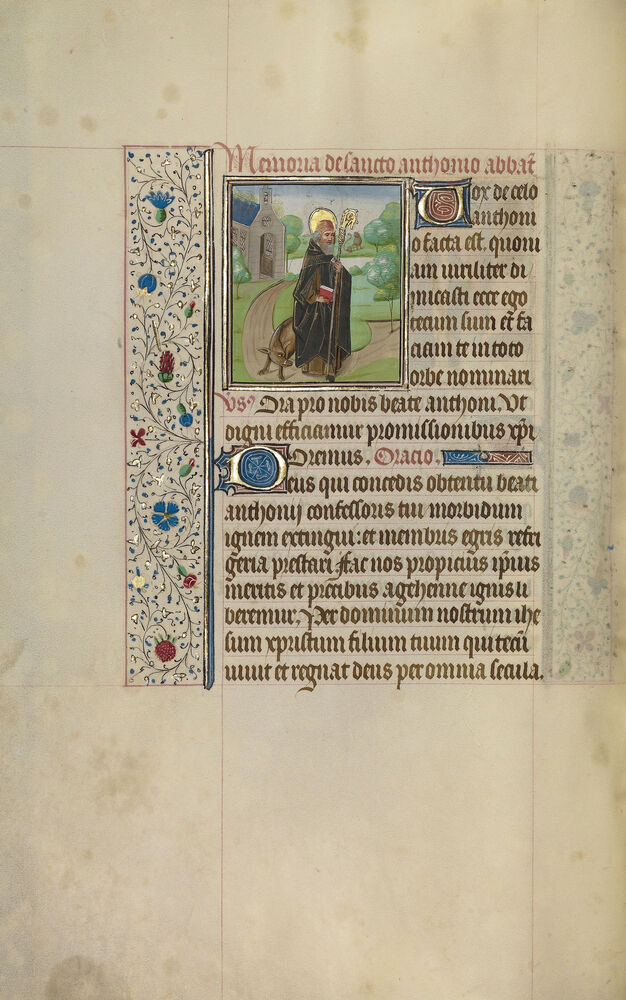 Memoria de sancto anthonio abbat̄
Vox de celo
anthoni
o facta est. quoni
am viriliter di
micasti ecce ego
tecum sum et fa
ciam te in toto
orbe nominari
Vsꝰ Ora pro nobis beate anthoni. Vt
digni efficiamur promissionibus xp̄i
Oremus. Oracio.
Deus qui concedis obtentu beati
anthonij confessoris tui morbidum
ignem extingui: et membris egris refri
geria prestari. fac nos propicius ip̄ius
meritis et precibus a gehenne ignis li
beremur. Per dominum nostrum ihe
sum xpristum filium tuum qui tecū
viuit et regnat deus per omnia secula.